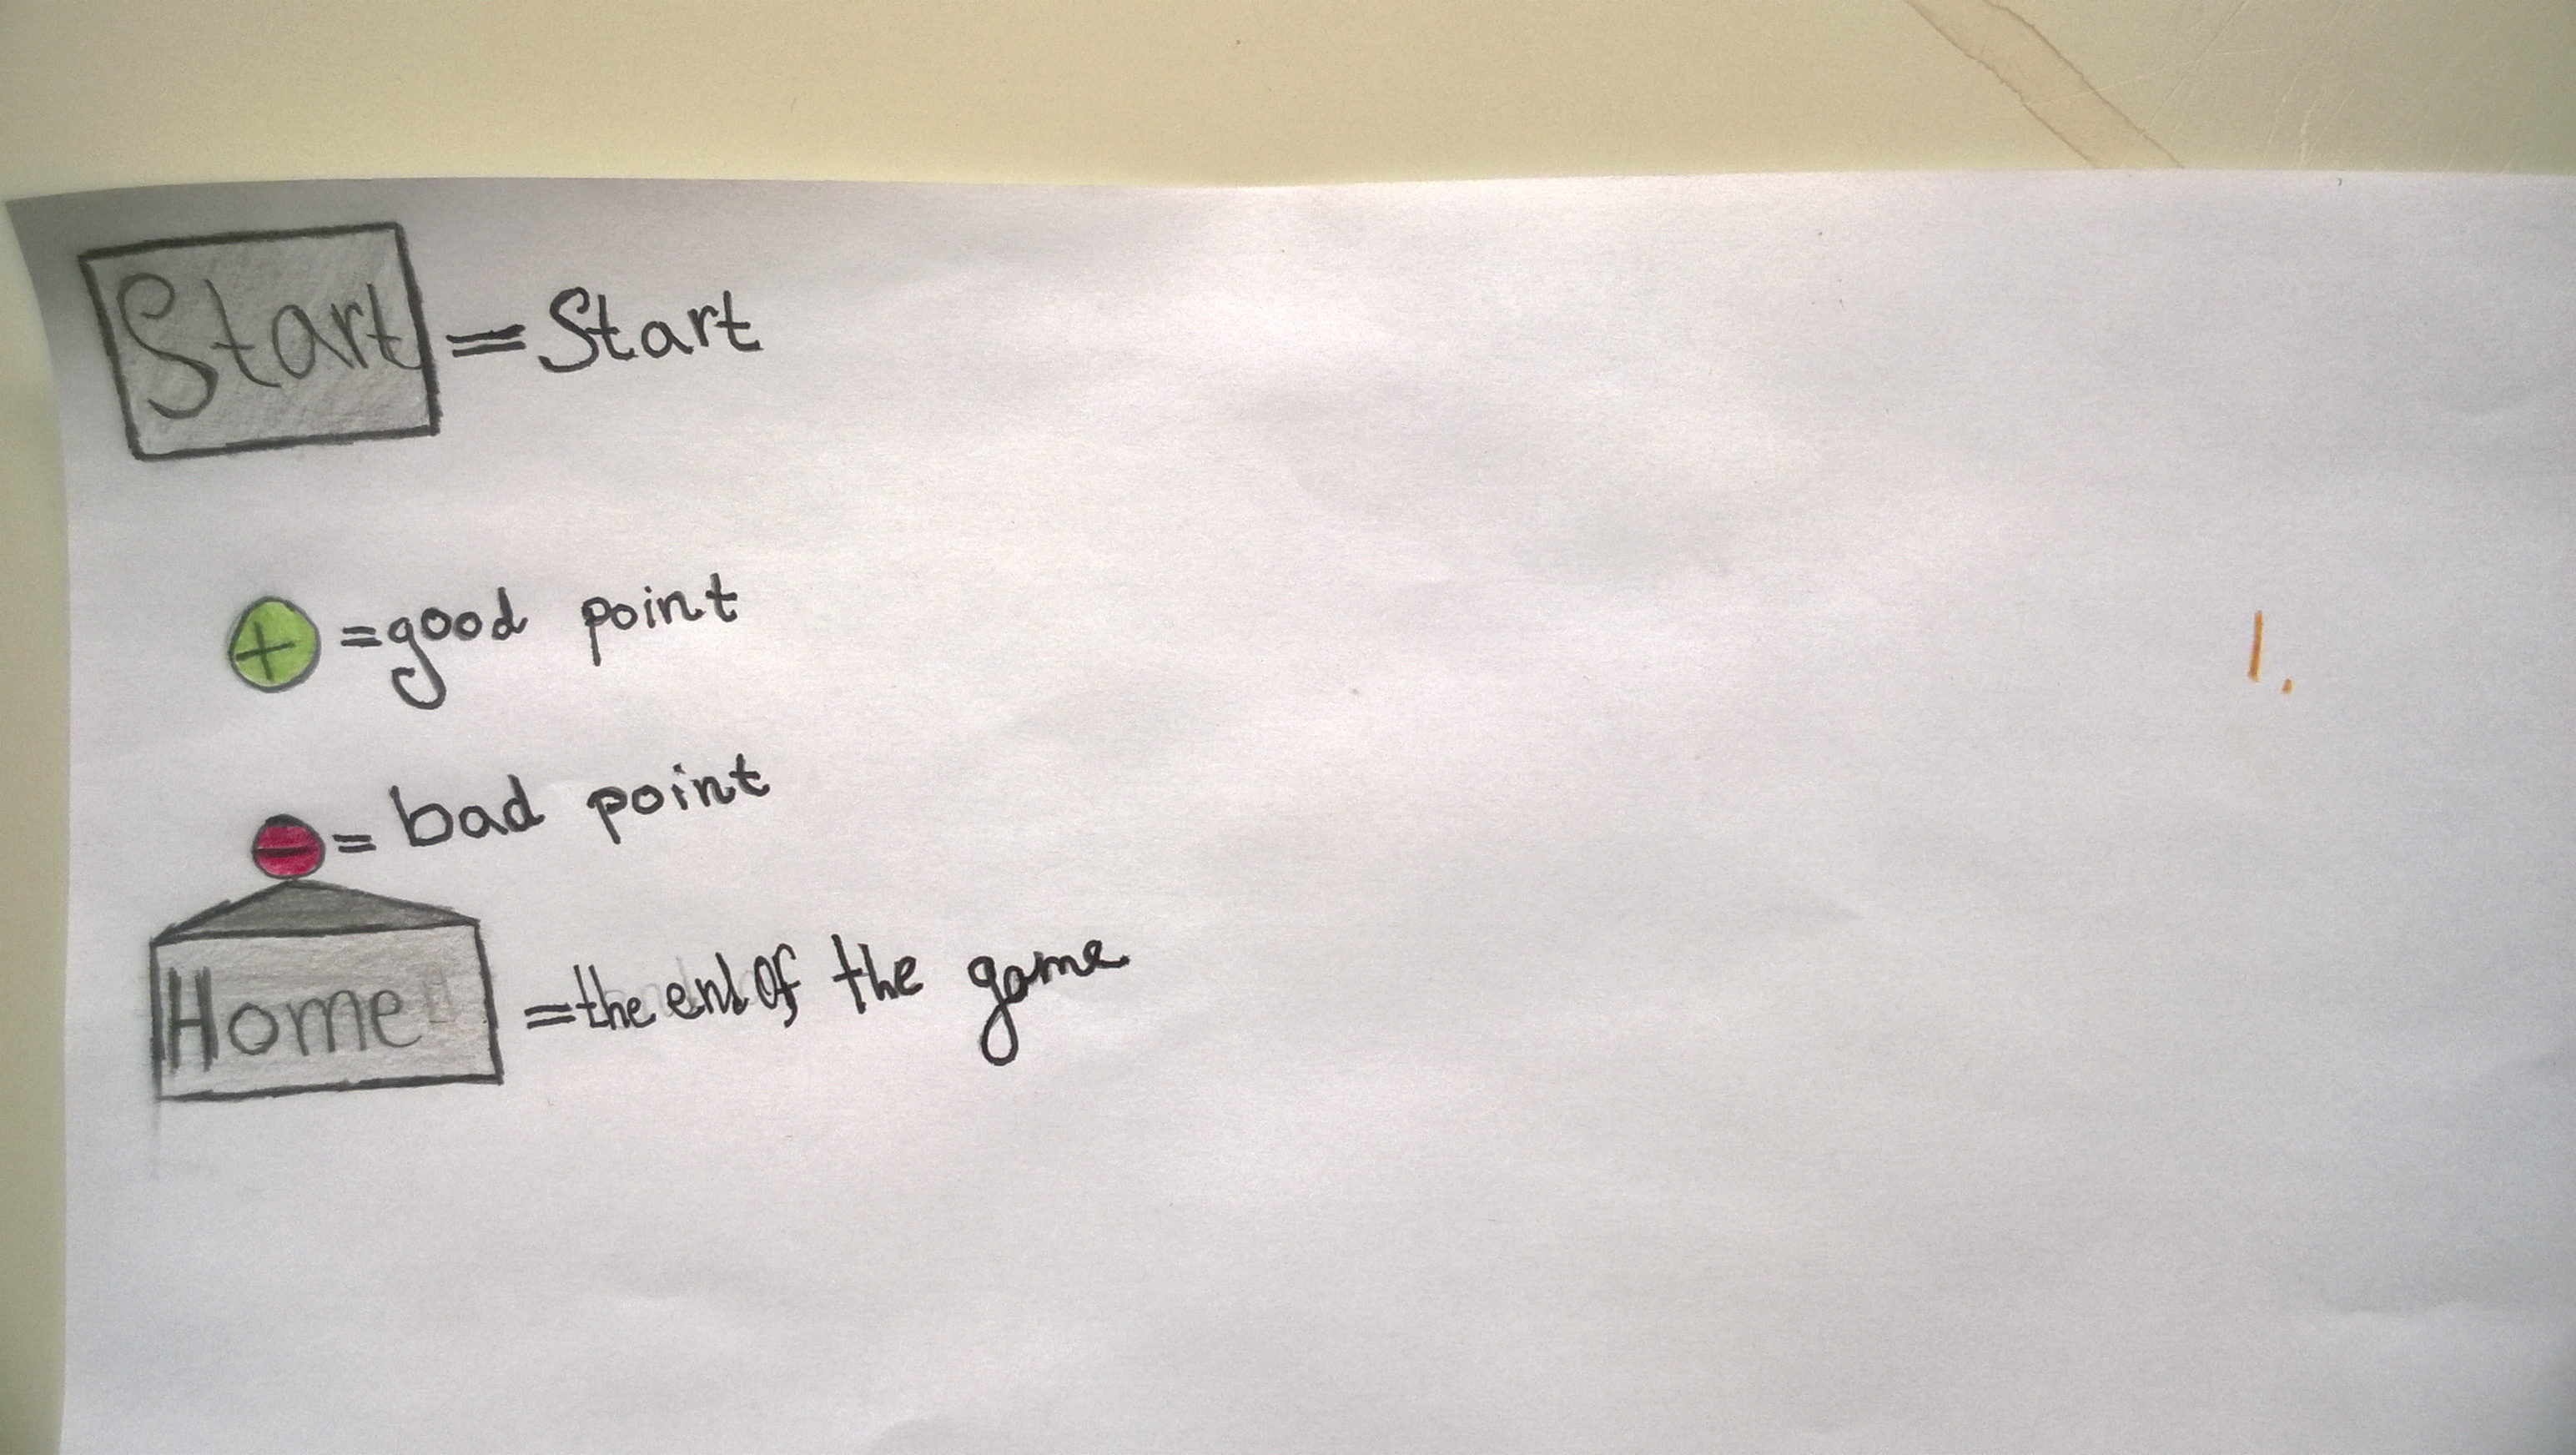 Start = Start
+ = good point
1.
- = bad point
Home = the end of the game